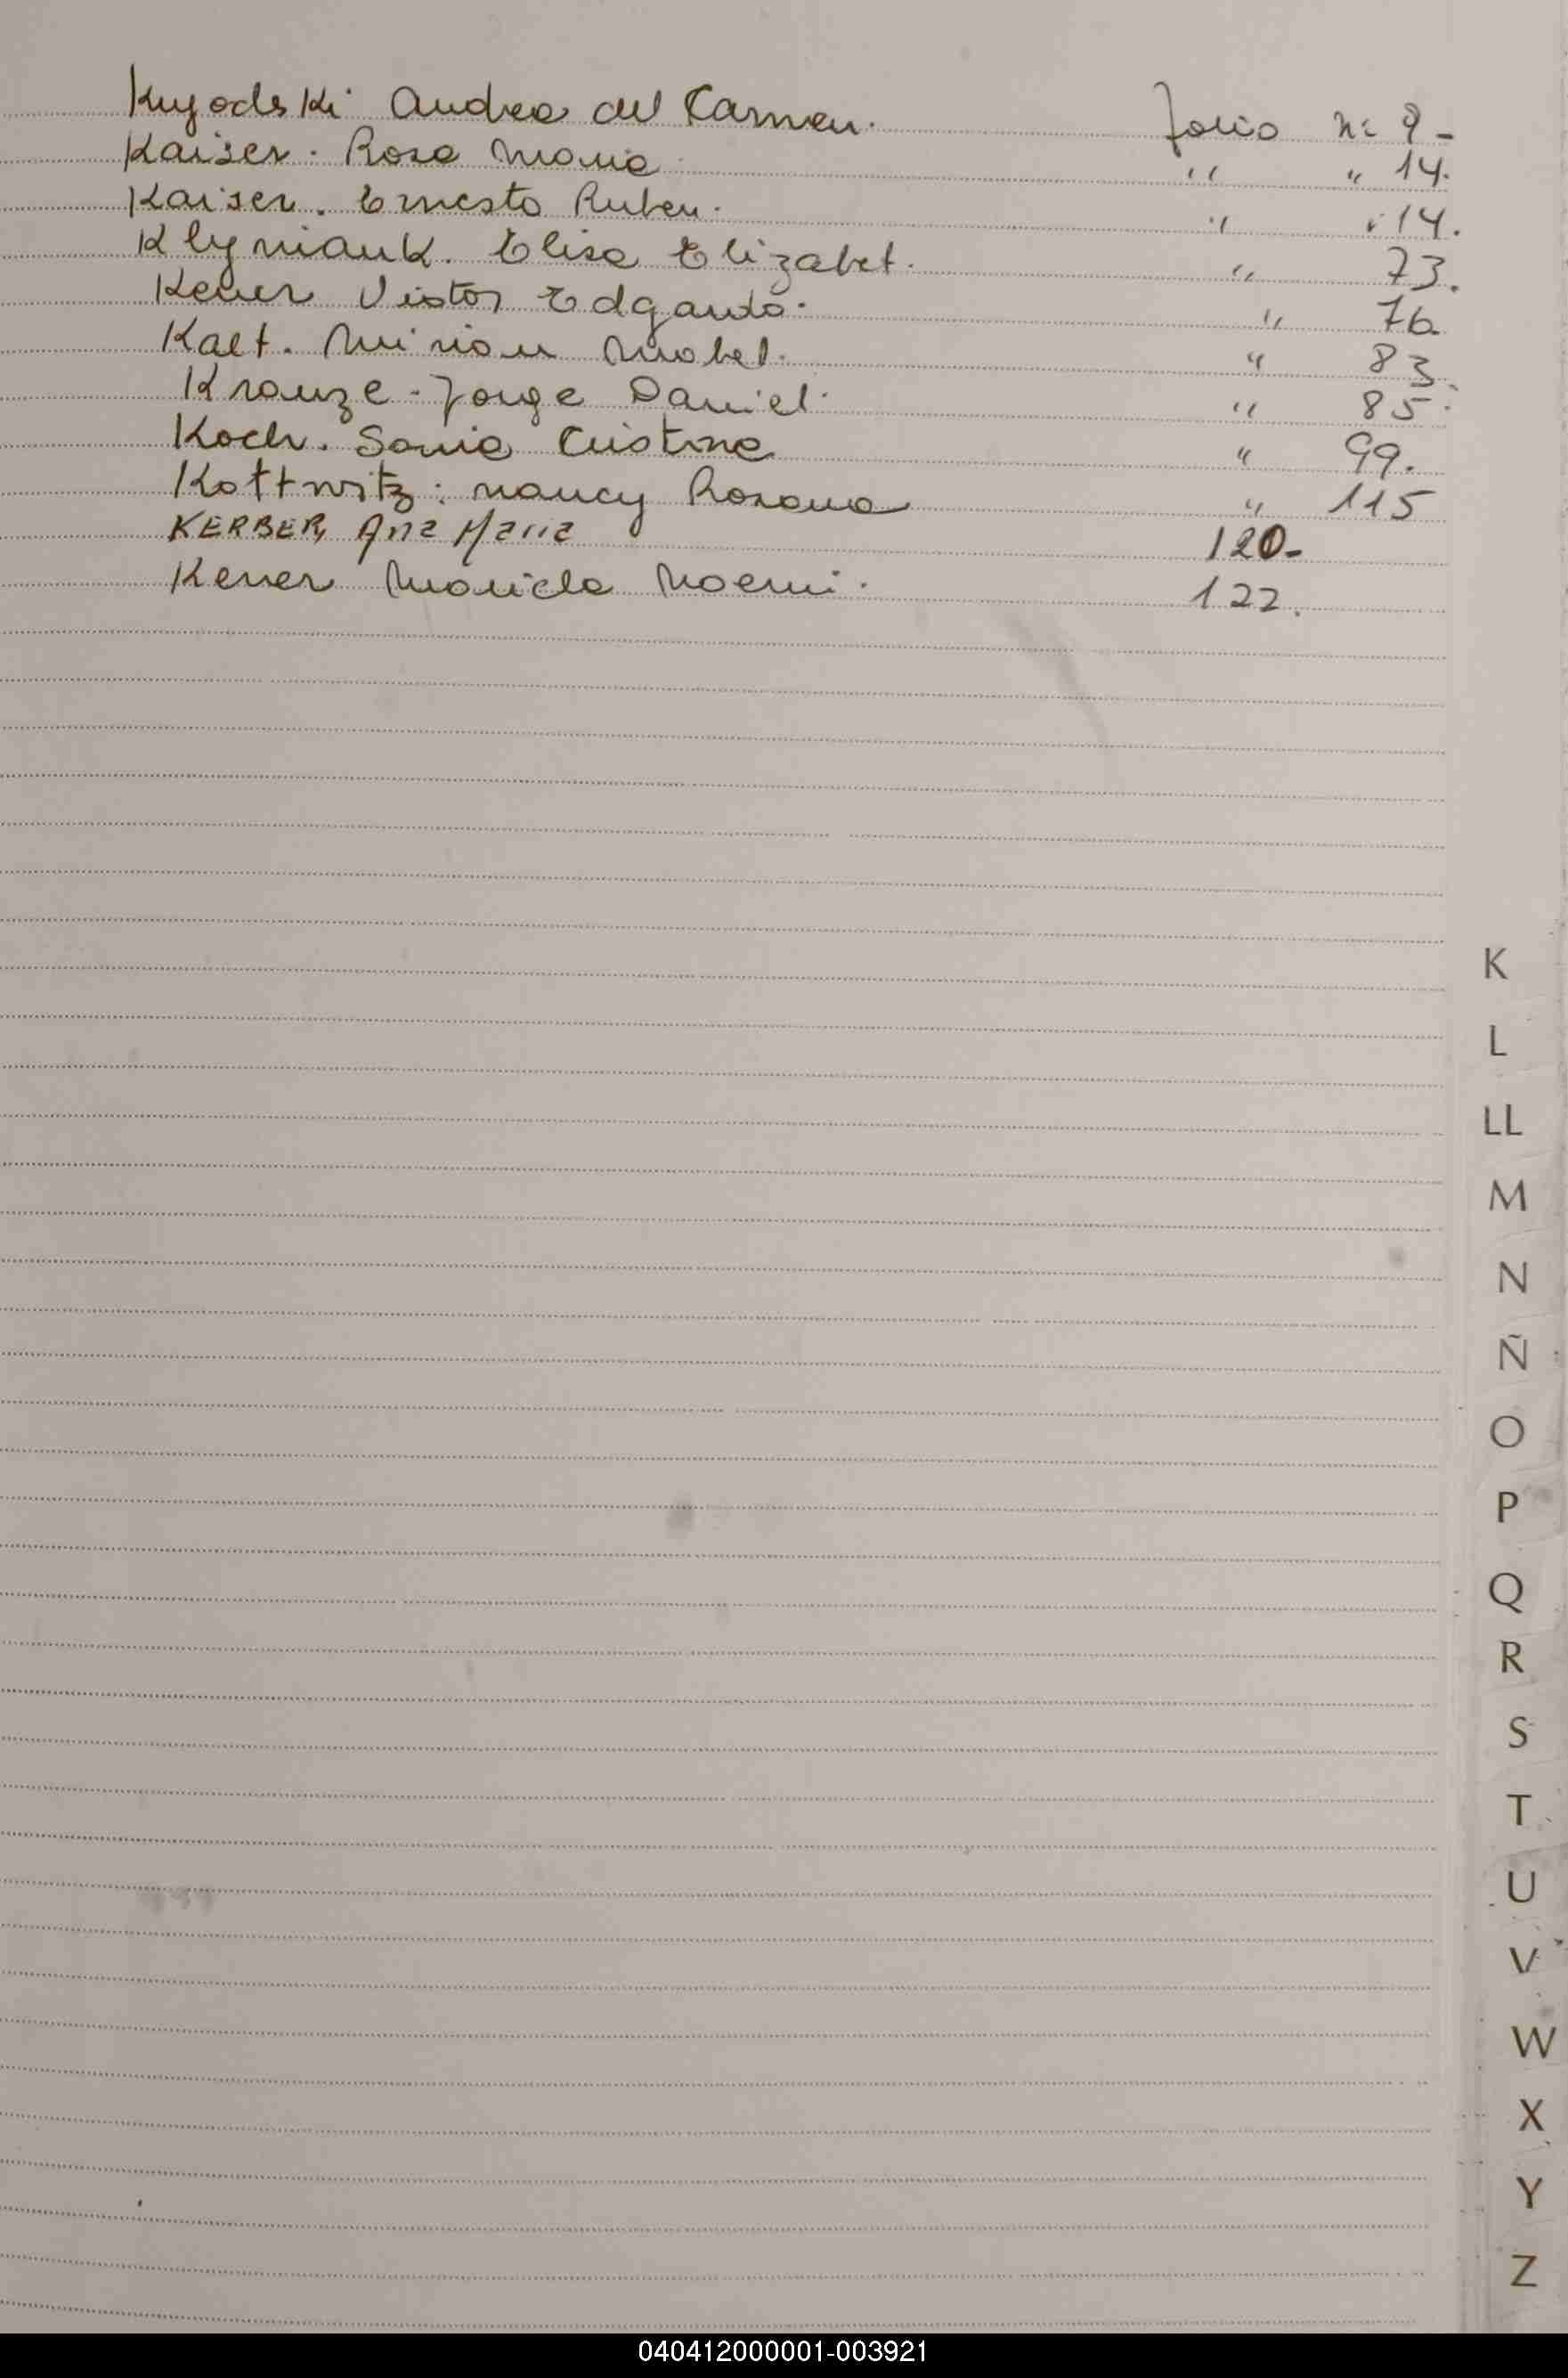 Kuyodski Andrea del Carmen. folio nº 9-
Kaiser. Rosa Maria " " 14.
Kaiser. Ernesto Ruben. " " 14.
Klymiauk. Elisa Elizabet. " 73.
Kener Victor Edgardo. " 76
Kalt. Miriam Mabel. " 83.
Krauze - Jorge Daniel. " 85.
Koch. Sonia Cristina " 99.
Kottwitz: Nancy Rosana " 115
KERBER, Ana Maria 120-
Kener Mariela Noemi. 122.
K
L
LL
M
N
Ñ
O
P
Q
R
S
T
U
V
W
X
Y
Z
040412000001-003921